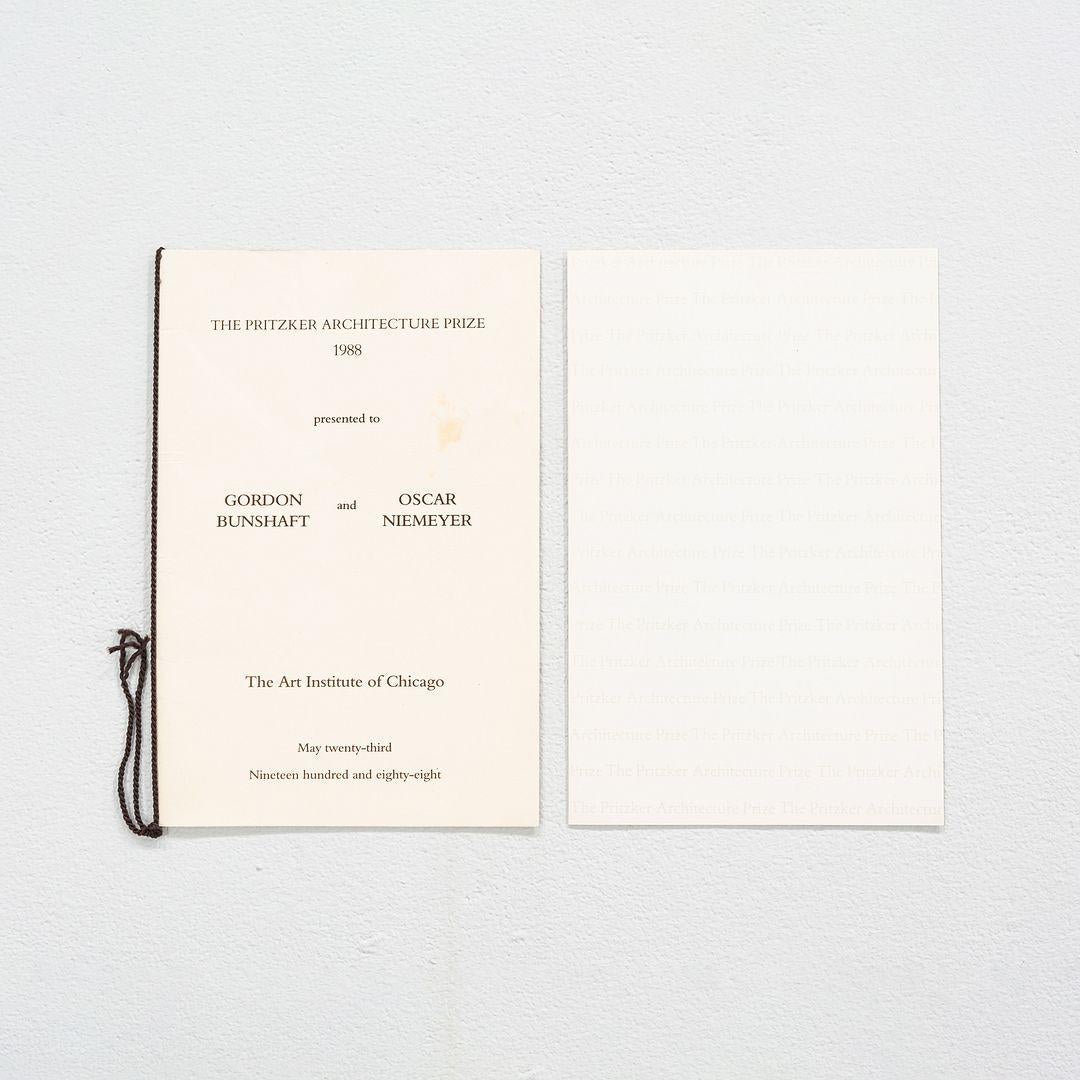 THE PRITZKER ARCHITECTURE PRIZE
1988
presented to
GORDON
BUNSHAFT
and
OSCAR
NIEMEYER
The Art Institute of Chicago
May twenty-third
Nineteen hundred and eighty-eight
Pritzker Architecture Prize The Pritzker Architecture
Architecture Prize The Pritzker Architecture Prize The
Prize The Pritzker Architecture Prize The Pritzker
The Pritzker Architecture Prize The Pritzker Architectu
Pritzker Architecture Prize The Pritzker Architecture
Architecture Prize The Pritzker Architecture Prize The
The Pritzker Architecture Prize The Pritzker
The Pritzker Architecture Prize The Pritzker Architectu
Pritzker Architecture Prize The Pritzker Architecture
Architecture Prize The Pritzker Architecture Prize The
Prize The Pritzker Architecture Prize The Pritzker Archi
The Pritzker Architecture Prize The Pritzker Architectu
Pritzker Architecture Prize The Pritzker Architecture
Architecture Prize The Pritzker Architecture Prize The
Prize The Pritzker Architecture Prize The Pritzker Archi
The Pritzker Architecture Prize The Pritzker Architectur